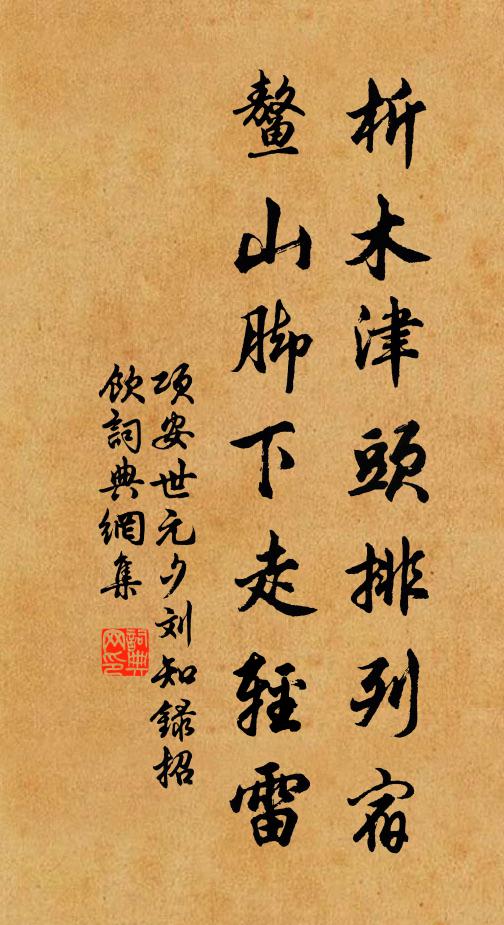 析木津頭排列宿
鳌山脚下走輕雷
项安世元夕刘知録招
飲詞典網集
詞典网印